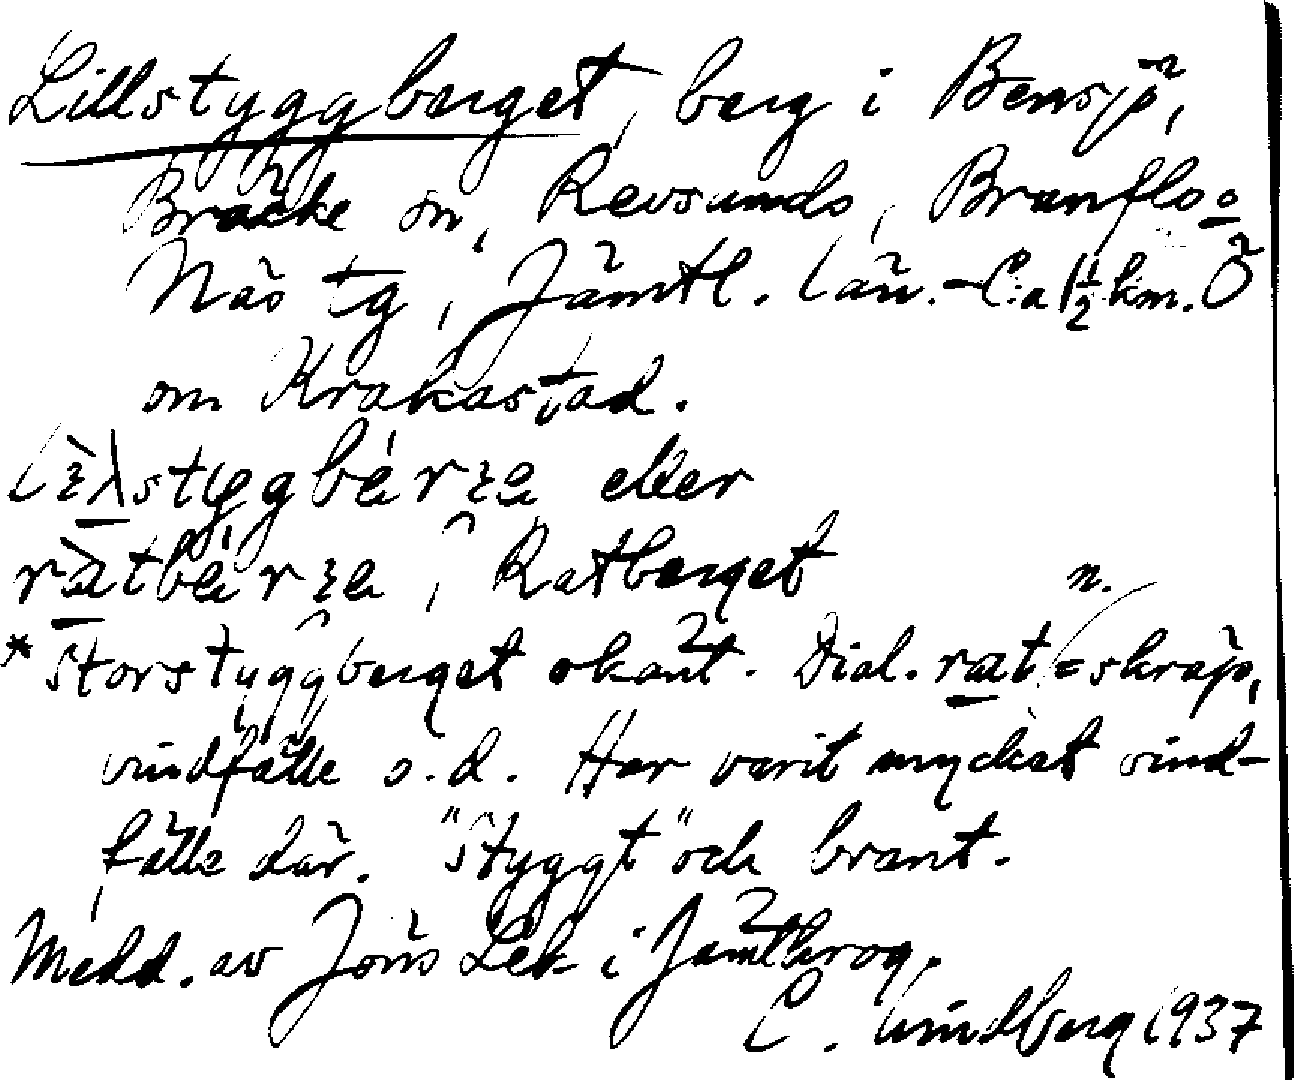 Lillstyggberget, berg i Bensjö,
Bräcke sn, Revsunds, Brunflo o
Näs tg, Jämtl. län. - C:a 1½ km. Ö
om Krakastad.
eller
, Ratberget
*Storstyggberget okänt. Dial. rat n. = skräp,
vindfälle o.d. Har varit mycket vind-
fälle där. "Styggt" och brant.
Medd. av Jöns Lek i Jämtkrog.
C. Lindberg 1937